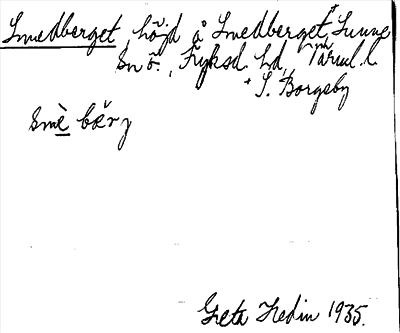 Smedberget, höjd å Smedberget, Sunne
Sn ö., Fryksd. hd, Värml. l.
S. Borgsby
smè̱ bærj
Greta Hedin 1935.